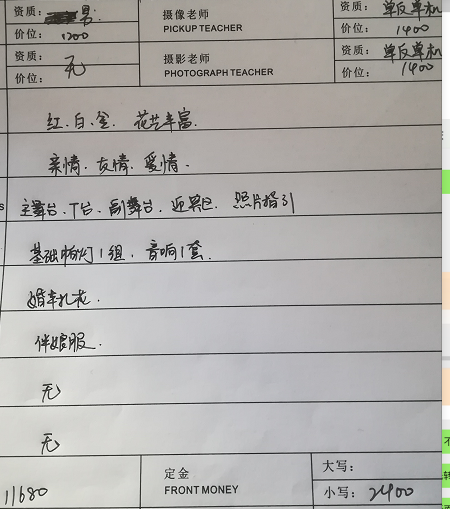 资质： 男 摄像老师 资质： 单反单机
价位： 1200 PICKUP TEACHER 价位： 1400
资质： 无 摄影老师 资质： 单反单机
价位： PHOTOGRAPH TEACHER 价位： 1400
红、白、金、花艺丰富
亲情、友情、爱情.
主舞台、T台、副舞台、迎宾区、照片指引
基础灯1组、音响1套.
婚车扎花.
伴娘服.
无
无
11680 定金 大写：
FRONT MONEY 小写： 2400